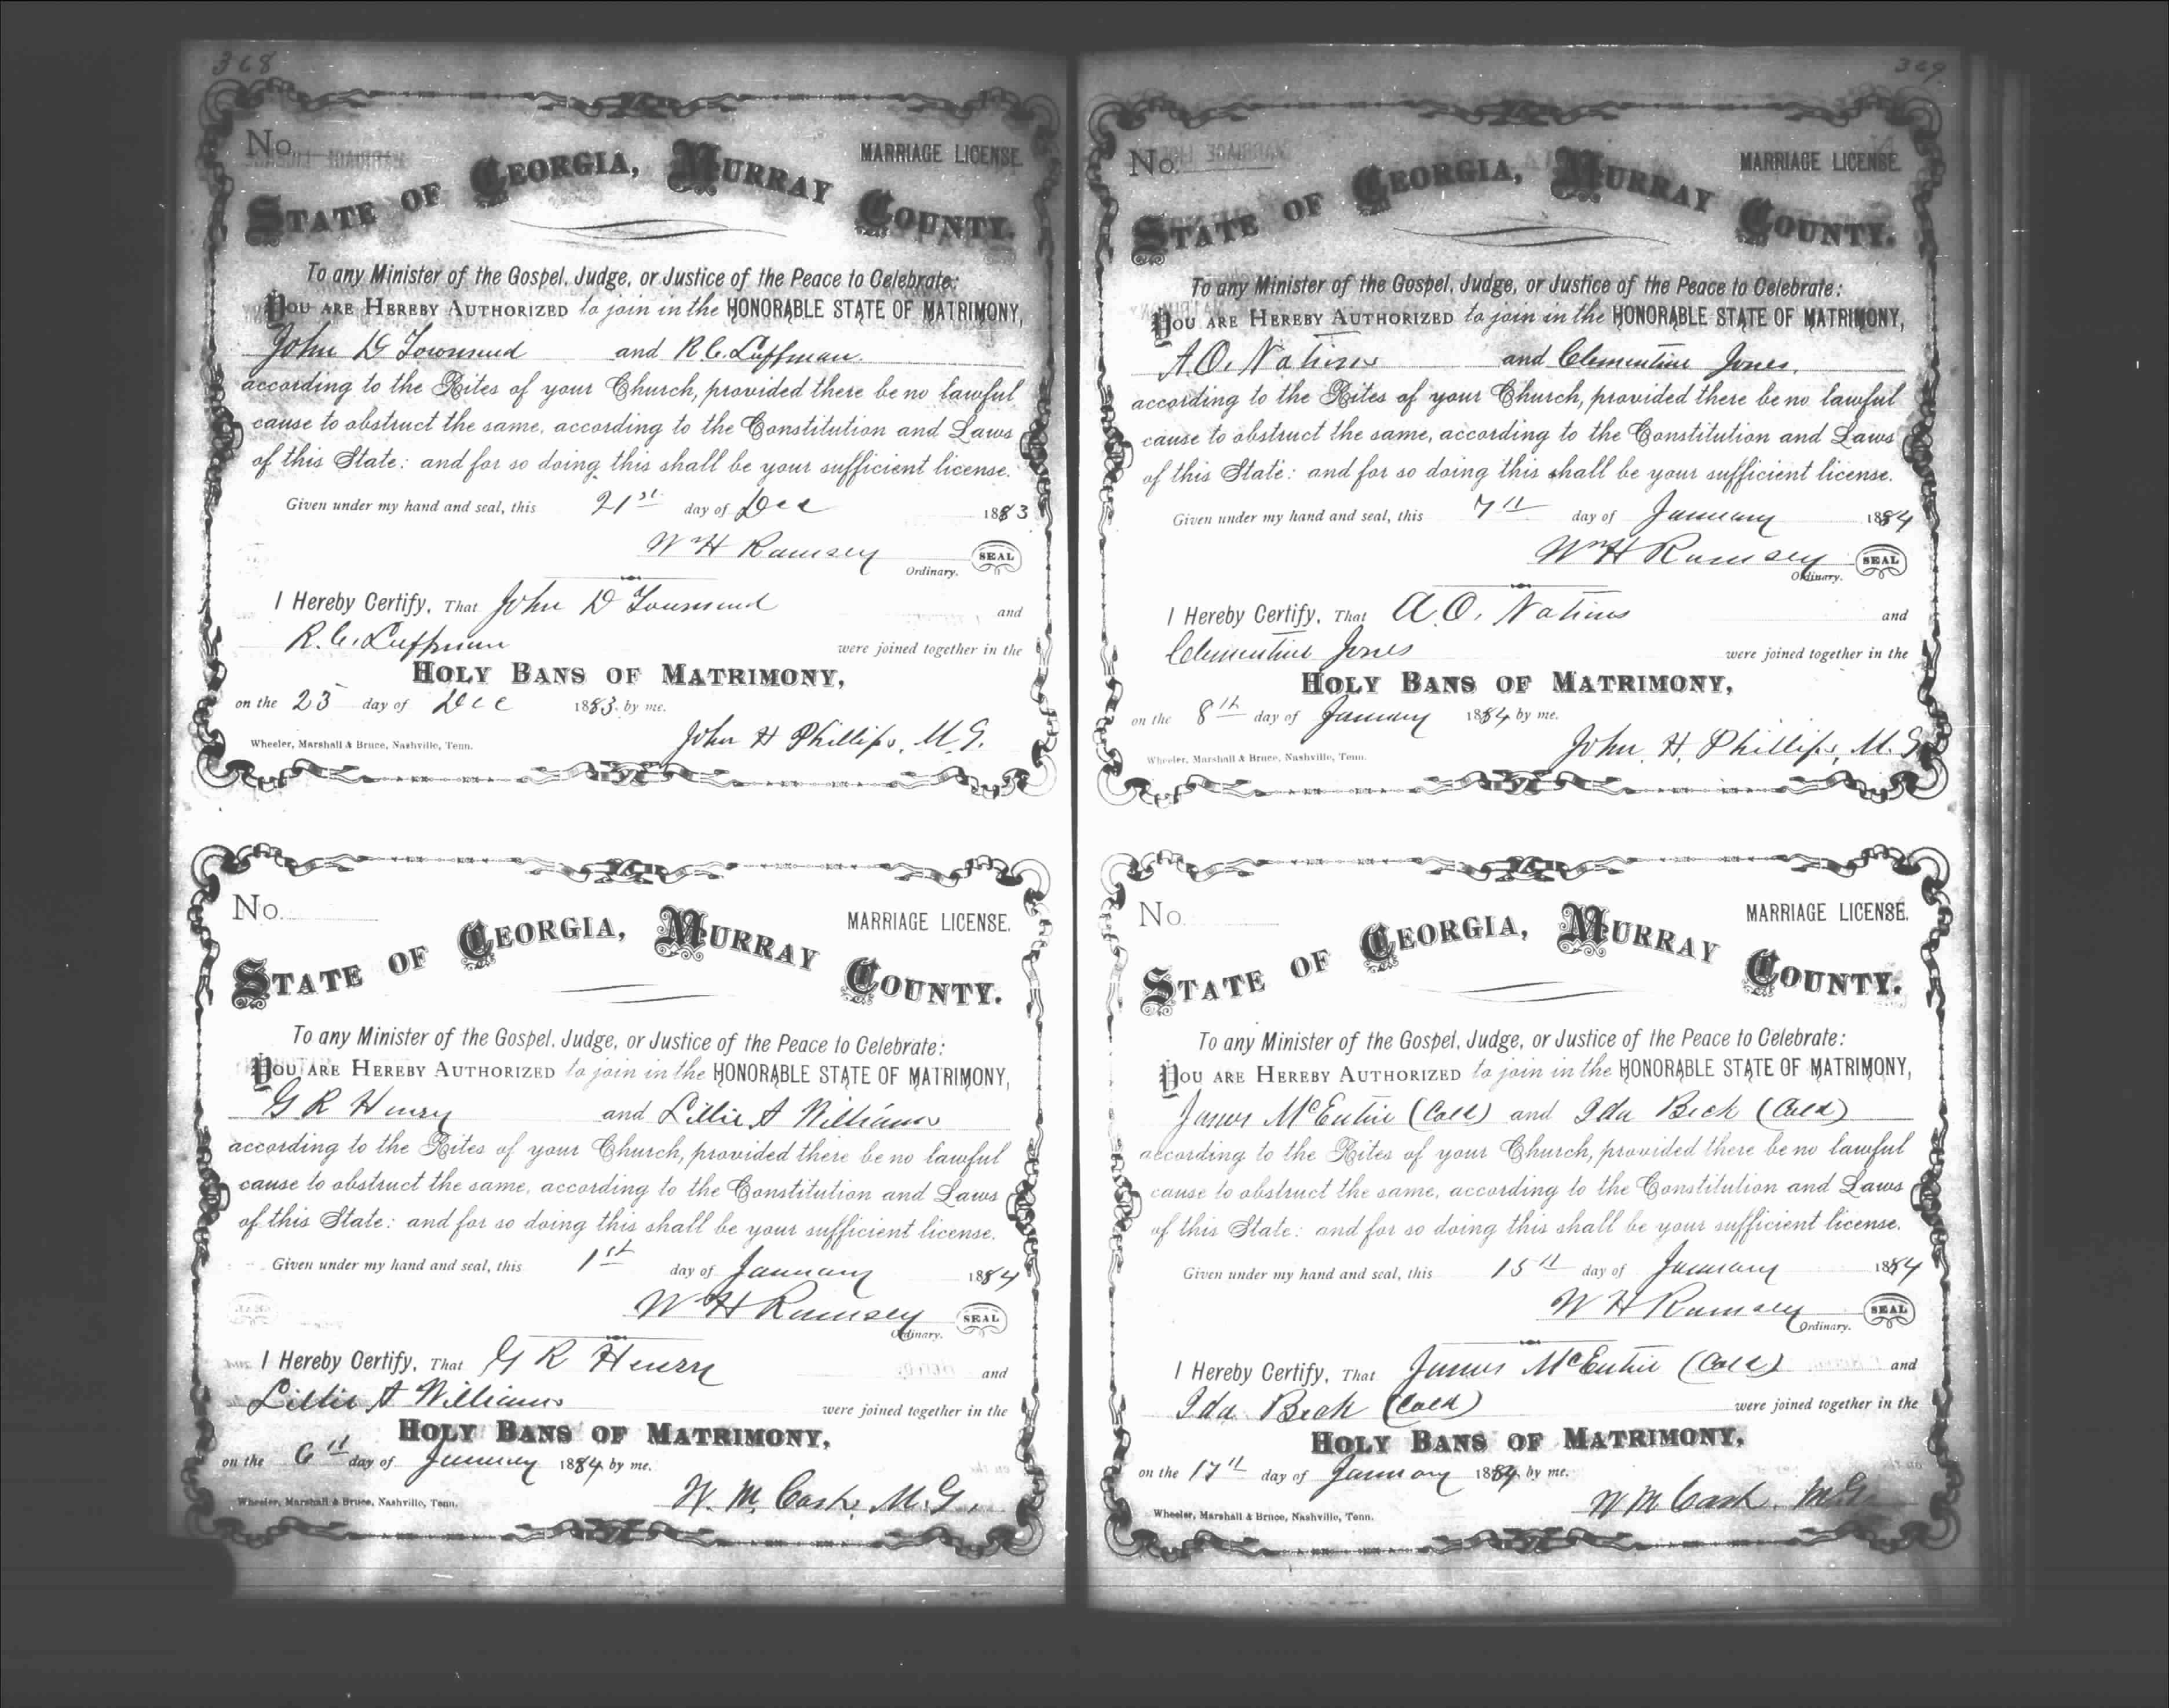 368
No.
MARRIAGE LICENSE.
STATE OF GEORGIA, MURRAY COUNTY.
To any Minister of the Gospel, Judge, or Justice of the Peace to Celebrate:
YOU ARE HEREBY AUTHORIZED to join in the HONORABLE STATE OF MATRIMONY,
John D Townsend and R.C. Luffman
according to the Rites of your Church, provided there be no lawful
cause to obstruct the same, according to the Constitution and Laws
of this State: and for so doing this shall be your sufficient license.
Given under my hand and seal, this 21st day of Dec 1883
Wm H Ramsey
Ordinary. SEAL
I Hereby Certify, That John D Townsend and
R.C. Luffman were joined together in the
HOLY BANS OF MATRIMONY,
on the 23 day of Dec 1883 by me.
John H Phillips, M.G.
Wheeler, Marshall & Bruce, Nashville, Tenn.
No.
MARRIAGE LICENSE.
STATE OF GEORGIA, MURRAY COUNTY.
To any Minister of the Gospel, Judge, or Justice of the Peace to Celebrate:
YOU ARE HEREBY AUTHORIZED to join in the HONORABLE STATE OF MATRIMONY,
G R Henry and Lillie A Williams
according to the Rites of your Church, provided there be no lawful
cause to obstruct the same, according to the Constitution and Laws
of this State: and for so doing this shall be your sufficient license.
Given under my hand and seal, this 1st day of January 1884
Wm H Ramsey
Ordinary. SEAL
I Hereby Certify, That G R Henry and
Lillie A Williams were joined together in the
HOLY BANS OF MATRIMONY,
on the 6th day of January 1884 by me.
W. M. Cash, M.G.
Wheeler, Marshall & Bruce, Nashville, Tenn.
369
No.
MARRIAGE LICENSE.
STATE OF GEORGIA, MURRAY COUNTY.
To any Minister of the Gospel, Judge, or Justice of the Peace to Celebrate:
YOU ARE HEREBY AUTHORIZED to join in the HONORABLE STATE OF MATRIMONY,
A.O. Nations and Clementine Jones.
according to the Rites of your Church, provided there be no lawful
cause to obstruct the same, according to the Constitution and Laws
of this State: and for so doing this shall be your sufficient license.
Given under my hand and seal, this 7th day of January 1884
Wm H Ramsey
Ordinary. SEAL
I Hereby Certify, That A.O. Nations and
Clementine Jones were joined together in the
HOLY BANS OF MATRIMONY,
on the 8th day of January 1884 by me.
John. H. Phillips, M.G.
Wheeler, Marshall & Bruce, Nashville, Tenn.
No.
MARRIAGE LICENSE.
STATE OF GEORGIA, MURRAY COUNTY.
To any Minister of the Gospel, Judge, or Justice of the Peace to Celebrate:
YOU ARE HEREBY AUTHORIZED to join in the HONORABLE STATE OF MATRIMONY,
James McEntire (Cold) and Ida Beck (Cold)
according to the Rites of your Church, provided there be no lawful
cause to obstruct the same, according to the Constitution and Laws
of this State: and for so doing this shall be your sufficient license.
Given under my hand and seal, this 15th day of January 1884
W H Ramsey
Ordinary. SEAL
I Hereby Certify, That James McEntire (Cold) and
Ida Beck (Cold) were joined together in the
HOLY BANS OF MATRIMONY,
on the 17th day of January 1884 by me.
W M Cash. M.G.
Wheeler, Marshall & Bruce, Nashville, Tenn.